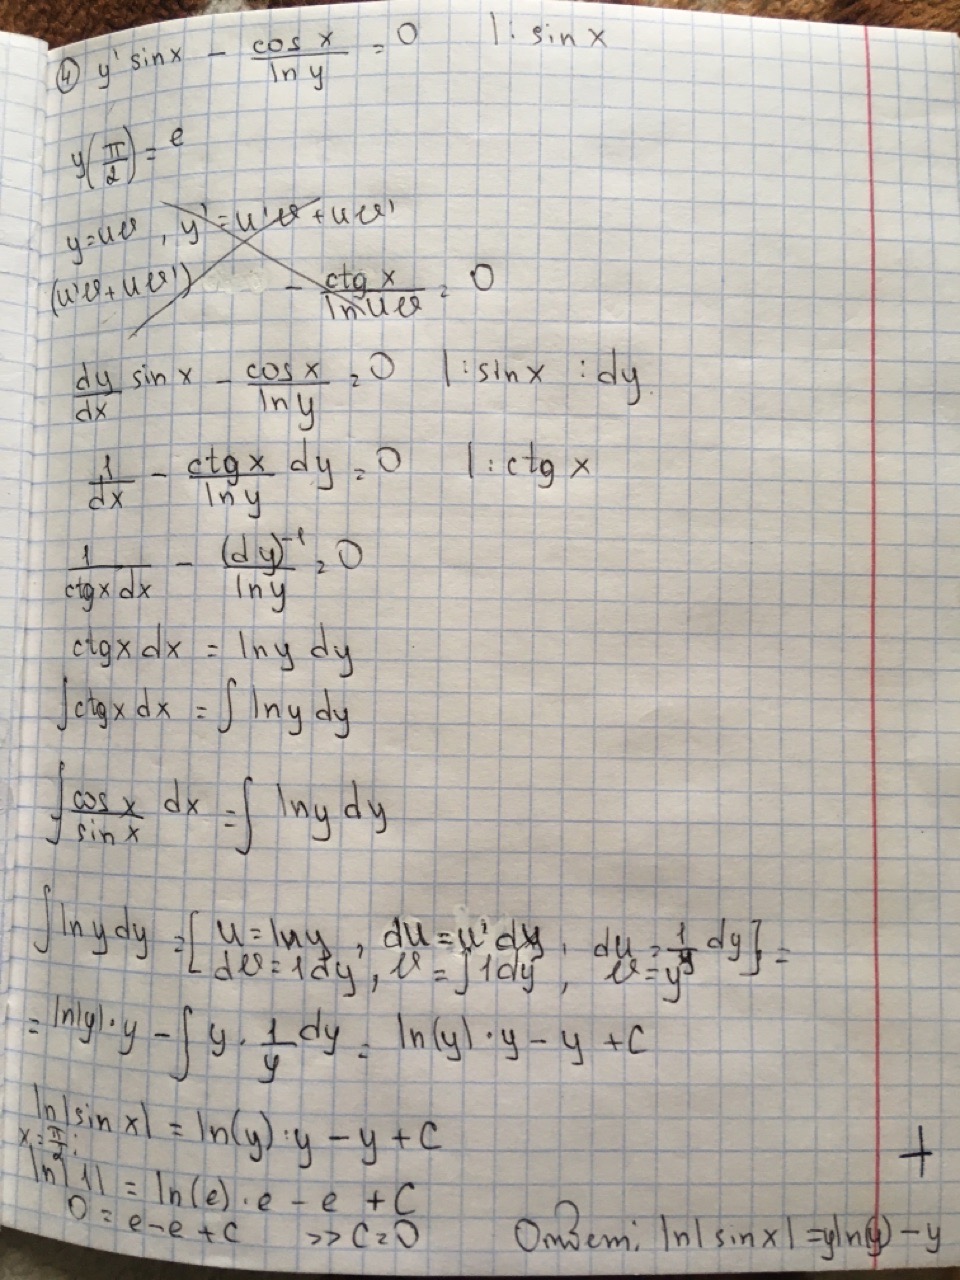 ④ y' sin x - cos x / ln y = 0 | : sin x
y(π/2) = e
y = uv , y' = u'v + uv'
(u'v + uv') - ctg x / ln uv = 0
dy/dx sin x - cos x / ln y = 0 | : sin x : dy
1/dx - ctg x / ln y dy = 0 | : ctg x
1 / ctg x dx - (dy)⁻¹ / ln y = 0
ctg x dx = ln y dy
∫ ctg x dx = ∫ ln y dy
∫ cos x / sin x dx = ∫ ln y dy
∫ ln y dy = [ u = ln y , du = u' dy , du = 1/y dy
dv = 1 dy , v = ∫ 1 dy , v = y ] =
= ln|y| · y - ∫ y · 1/y dy = ln(y) · y - y + C
ln|sin x| = ln(y) · y - y + C
x = π/2 :
ln|1| = ln(e) · e - e + C
0 = e - e + C >> C = 0
Ответ: ln|sin x| = y ln(y) - y
+